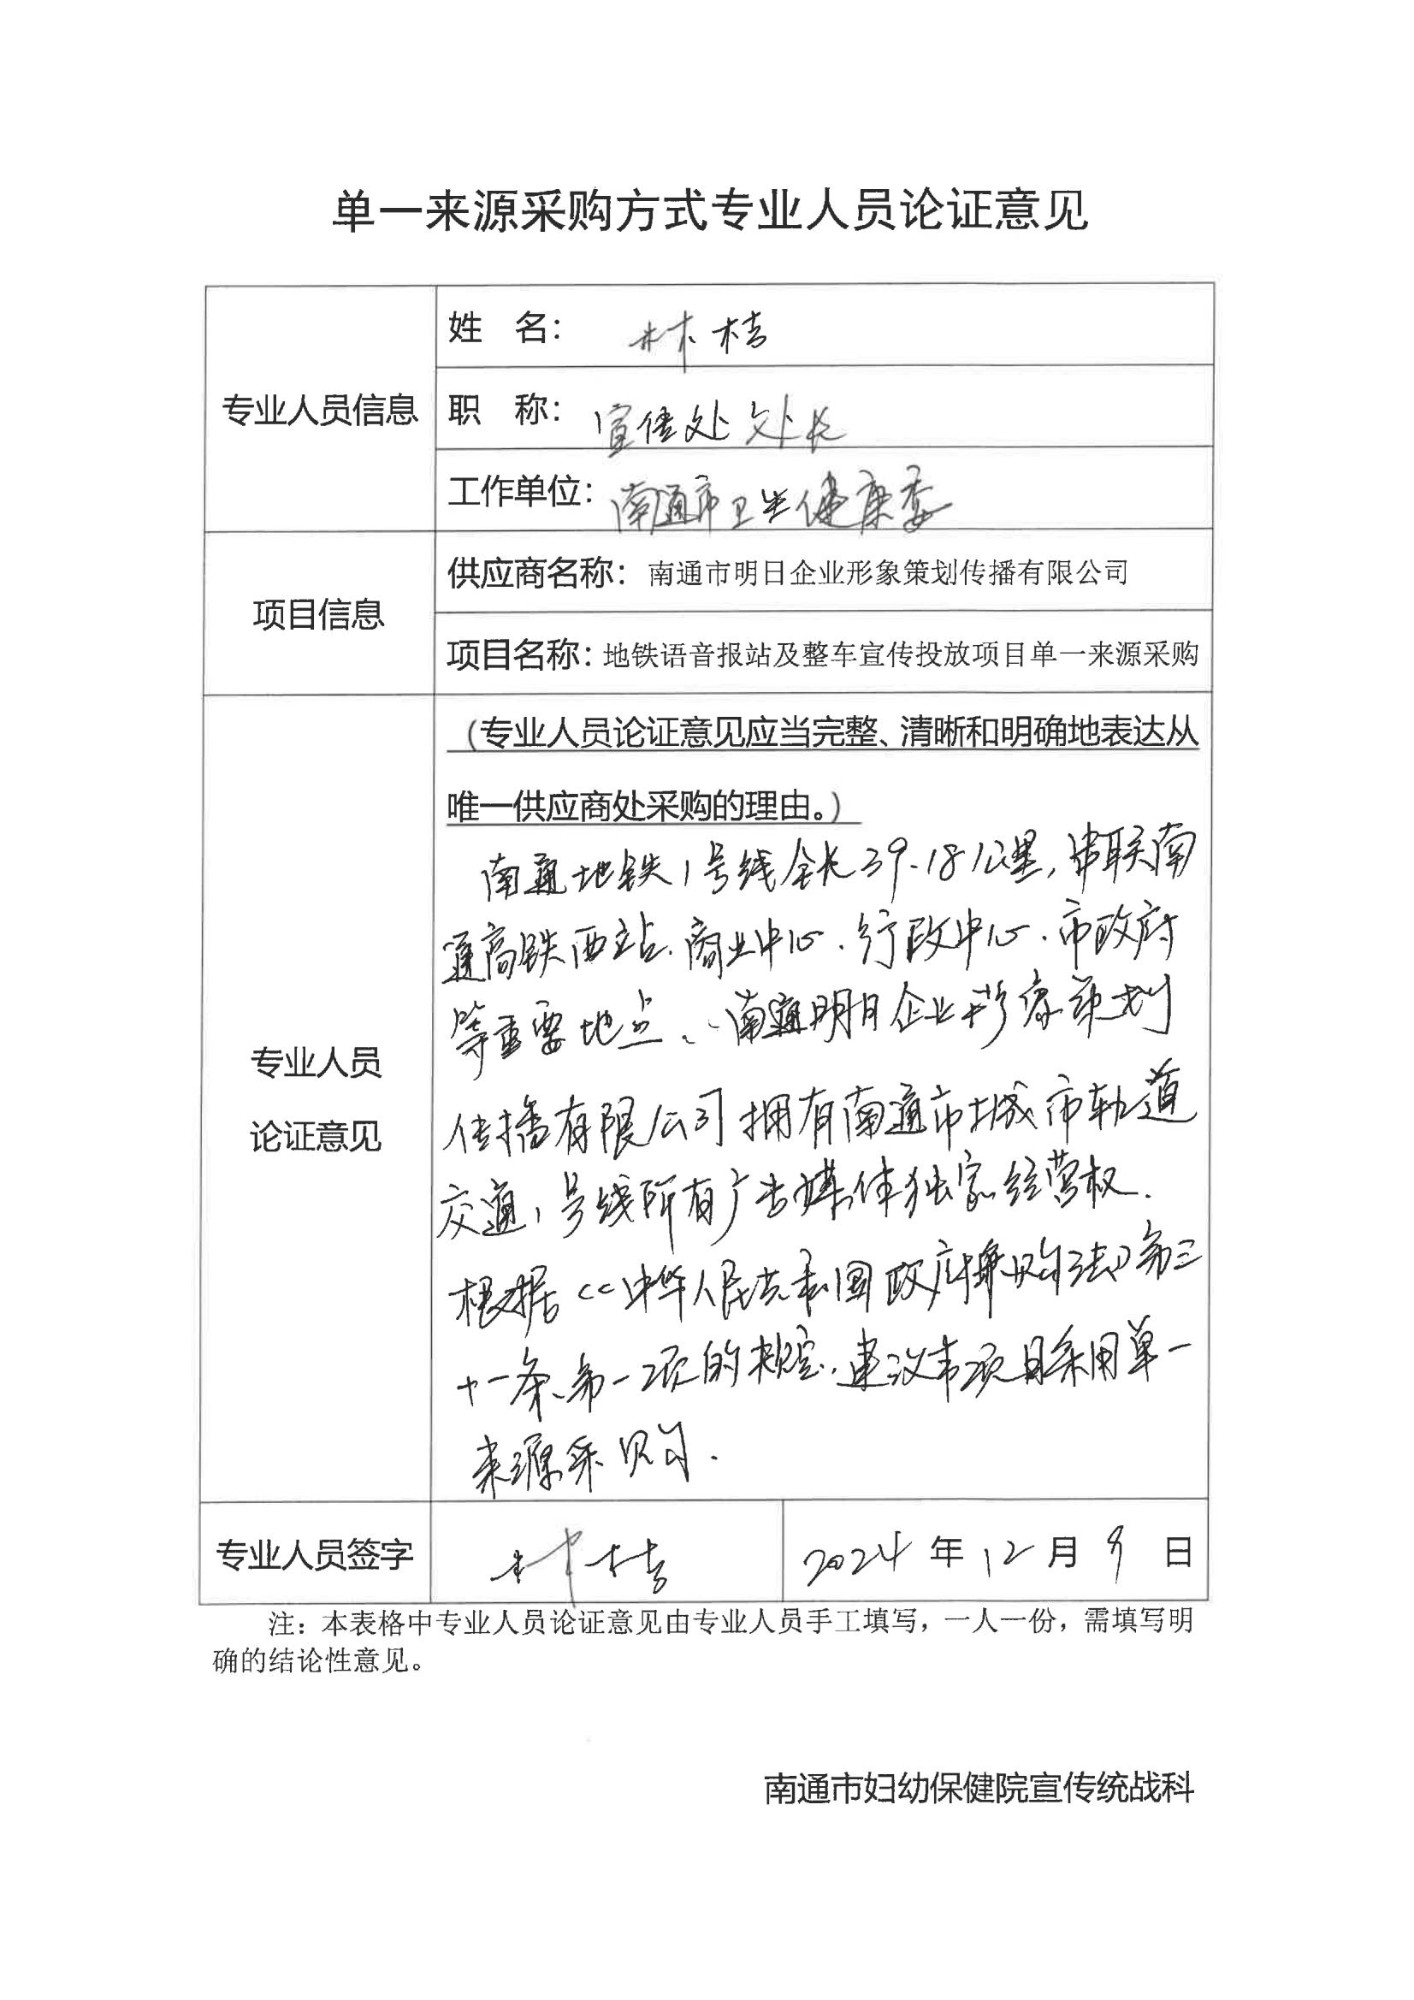 单一来源采购方式专业人员论证意见
专业人员信息
姓 名： 林桔
职 称： 宣传处处长
工作单位： 南通市卫生健康委
项目信息
供应商名称：南通市明日企业形象策划传播有限公司
项目名称：地铁语音报站及整车宣传投放项目单一来源采购
专业人员
论证意见
（专业人员论证意见应当完整、清晰和明确地表达从
唯一供应商处采购的理由。）
南通地铁1号线全长39.18公里，串联南
通高铁西站、商业中心、行政中心、市政府
等重要地点、南通明日企业形象策划
传播有限公司拥有南通市城市轨道
交通1号线所有广告媒体独家经营权.
根据《中华人民共和国政府采购法》第三
十一条第一项的规定，建议本项目采用单一
来源采购.
专业人员签字
林桔
2024 年 12 月 9 日
注：本表格中专业人员论证意见由专业人员手工填写，一人一份，需填写明
确的结论性意见。
南通市妇幼保健院宣传统战科